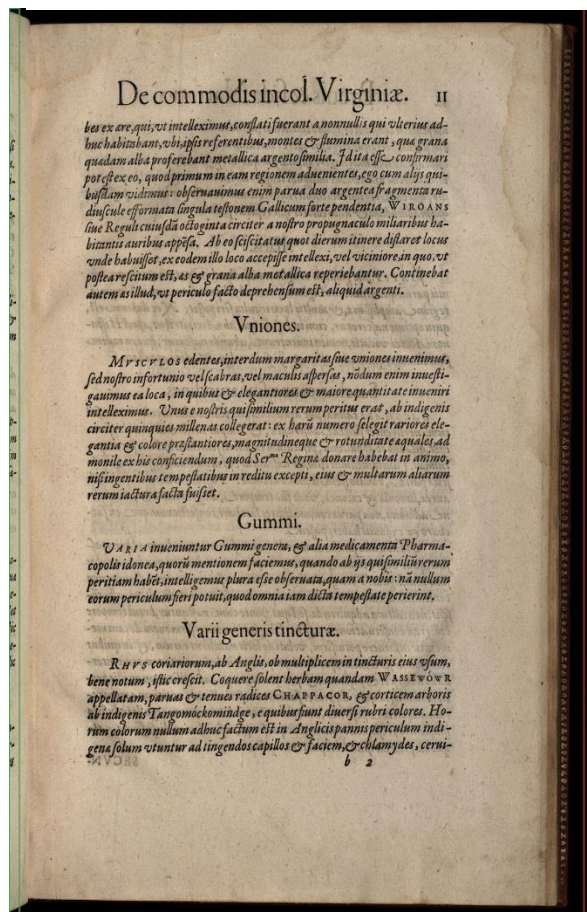 De commodis incol. Virginiæ. 11
bes ex ære, qui, vt intelleximus, conflati fuerant a nonnullis qui vlterius ad-
huc habitabant, vbi, ipsis referentibus, montes & flumina erant, quæ grana
quædam alba proferebant metallica argento similia. Id ita esse confirmari
potest ex eo, quod primum in eam regionem aduenientes, ego cum alijs qui-
busdam vidimus: obseruauimus enim parua duo argentea fragmenta ru-
diuscule efformata singula testonem Gallicum forte pendentia, WIROANS
siue Reguli cuiusdã octoginta circiter a nostro propugnaculo miliaribus ha-
bitantis auribus appẽsa. Ab eo sciscitatus quot dierum itinere distaret locus
vnde habuisset, ex eodem illo loco accepisse intellexi, vel viciniore, in quo, vt
postea rescitum est, æs & grana alba metallica reperiebantur. Continebat
autem æs illud, vt periculo facto deprehensum est, aliquid argenti.
Vniones.
MVSCVLOS edentes, interdum margaritas siue vniones inuenimus,
sed nostro infortunio vel scabras, vel maculis aspersas, nõdum enim inuesti-
gauimus ea loca, in quibus & elegantiores & maiore quantitate inueniri
intelleximus. Vnus e nostris qui similium rerum peritus erat, ab indigenis
circiter quinquies millenas collegerat: ex harũ numero selegit rariores ele-
gantia & colore præstantiores, magnitudineque & rotunditate æquales, ad
monile ex his conficiendum, quod Ser.mæ Reginæ donare habebat in animo,
nisi ingentibus tempestatibus in reditu excepti, eius & multarum aliarum
rerum iactura facta fuisset.
Gummi.
VARIA inueniuntur Gummi genera, & alia medicamenta Pharma-
copolis idonea, quorũ mentionem faciemus, quando ab ijs qui similiũ rerum
peritiam habẽt, intelligemus plura esse obseruata, quam a nobis: nã nullum
eorum periculum fieri potuit, quod omnia iam dicta tempestate perierint.
Varii generis tincturæ.
RHVS coriariorum, ab Anglis, ob multiplicem in tincturis eius vsum,
bene notum, istic crescit. Coquere solent herbam quandam WASSEWÓWR
appellatam, paruas & tenues radices CHAPPACOR, & corticem arboris
ab indigenis Tangomóckomindge, e quibus fiunt diuersi rubri colores. Ho-
rum colorum nullum adhuc factum est in Anglicis pannis periculum indi-
genæ solum vtuntur ad tingendos capillos & faciem, & chlamydes, cerui-
b 2